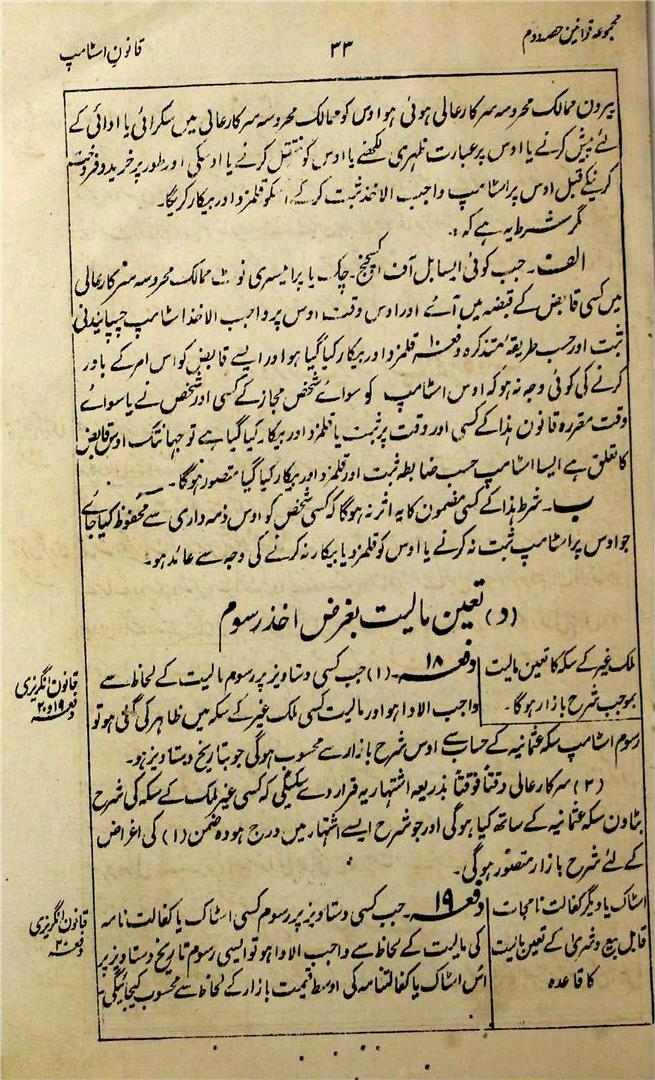 مجموعہ قوانین حصہ دوم
۳۳
قانونِ اسٹامپ
بیرون ممالک محروسہ سرکارعالی ہوئی ہو اوس کو ممالک محروسہ سرکارعالی میں سکرائی یا ادائی کے
لئے پیش کرنے یا اوس پر عبارت ظہری لکھنے یا اوس کو منتقل کرنے یا اوسکی اور طور پر خرید و فروخت
کرنیکے قبل اوس پر اسٹامپ واجب الاخذ ثبت کرکے اسکو قلمزد اور بیکار کریگا۔
مگر شرط یہ ہے کہ :۔
الف۔ جب کوئی ایسا بل آف اکسچینج۔ چک۔ یا پرامیسری نوٹ ممالک محروسہ سرکارعالی
میں کسی قابض کے قبضہ میں آئے اور اوس وقت اوس پر واجب الاخذ اسٹامپ چسپانیدنی
ثبت اور حسب طریقہ متذکرہ دفعہ ۱۰ قلمزد اور بیکار کیا گیا ہو اور ایسے قابض کو اس امر کے باور
کرنے کی کوئی وجہ نہ ہو کہ اوس اسٹامپ کو سوائے شخص مجاز کے کسی اور شخص نے یا سوائے
وقت مقررہ قانون ہذا کے کسی اور وقت پر ثبت یا قلمزد اور بیکار کیا گیا ہے تو جہانتک اوس قابض
کا تعلق ہے ایسا اسٹامپ حسب ضابطہ ثبت اور قلمزد اور بیکار کیا گیا متصور ہوگا۔
ب۔ شرط ہذا کے کسی مضمون کا یہ اثر نہ ہوگا کہ کسی شخص کو اوس ذمہ داری سے محفوظ کیا جائے
جو اوس پر اسٹامپ ثبت نہ کرنے یا اوس کو قلمزد یا بیکار نہ کرنے کی وجہ سے عائد ہو۔
(د) تعین مالیت بغرض اخذ رسوم
ملک غیر کے سکہ کا تعین مالیت
بموجب شرح بازار ہوگا۔
دفعہ ۱۸۔ (۱) جب کسی دستاویز پر رسوم مالیت کے لحاظ سے
واجب الادا ہو اور مالیت کسی ملک غیر کے سکہ میں ظاہر کی گئی ہو تو
رسوم اسٹامپ سکہ عثمانیہ کے حساب سے اوس شرح بازار سے محسوب ہوگی جو بتاریخ دستاویز ہو۔
قانون انگریزی
دفعہ ۱۹ و ۲۰
(۲) سرکارعالی وقتاً فوقتاً بذریعہ اشتہار یہ قرار دے سکیگی کہ کسی غیر ملک کے سکہ کی شرح
بٹاون سکہ عثمانیہ کے ساتھ کیا ہوگی اور جو شرح ایسے اشتہار میں درج ہو وہ ضمن (۱) کی اغراض
کے لئے شرح بازار متصور ہوگی۔
اسٹاک یا دیگر کفالت نامجات
قابل بیع و شریٰ کے تعین مالیت
کا قاعدہ
دفعہ ۱۹۔ جب کسی دستاویز پر رسوم کسی اسٹاک یا کفالت نامہ
کی مالیت کے لحاظ سے واجب الادا ہو تو ایسی رسوم تاریخ دستاویز پر
اس اسٹاک یا کفالتنامہ کی اوسط قیمت بازار کے لحاظ سے محسوب کیجائیگی
قانون انگریزی
دفعہ ۲۰